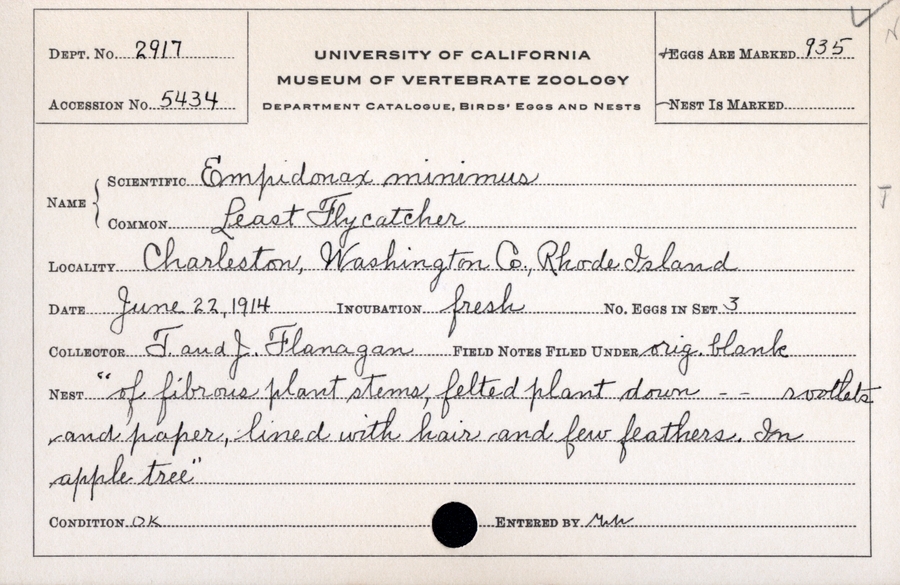 Dept. No. 2917
Accession No. 5434
UNIVERSITY OF CALIFORNIA
MUSEUM OF VERTEBRATE ZOOLOGY
Department Catalogue, Birds' Eggs and Nests
Eggs Are Marked 935
Nest Is Marked
Name
Scientific Empidonax minimus
Common Least Flycatcher
T
Locality Charleston, Washington Co., Rhode Island
Date June 22, 1914 Incubation fresh No. Eggs in Set 3
Collector T. and J. Flanagan Field Notes Filed Under orig. blank
Nest "of fibrous plant stems, felted plant down -- rootlets
and paper, lined with hair and few feathers. In
apple tree"
Condition OK Entered by